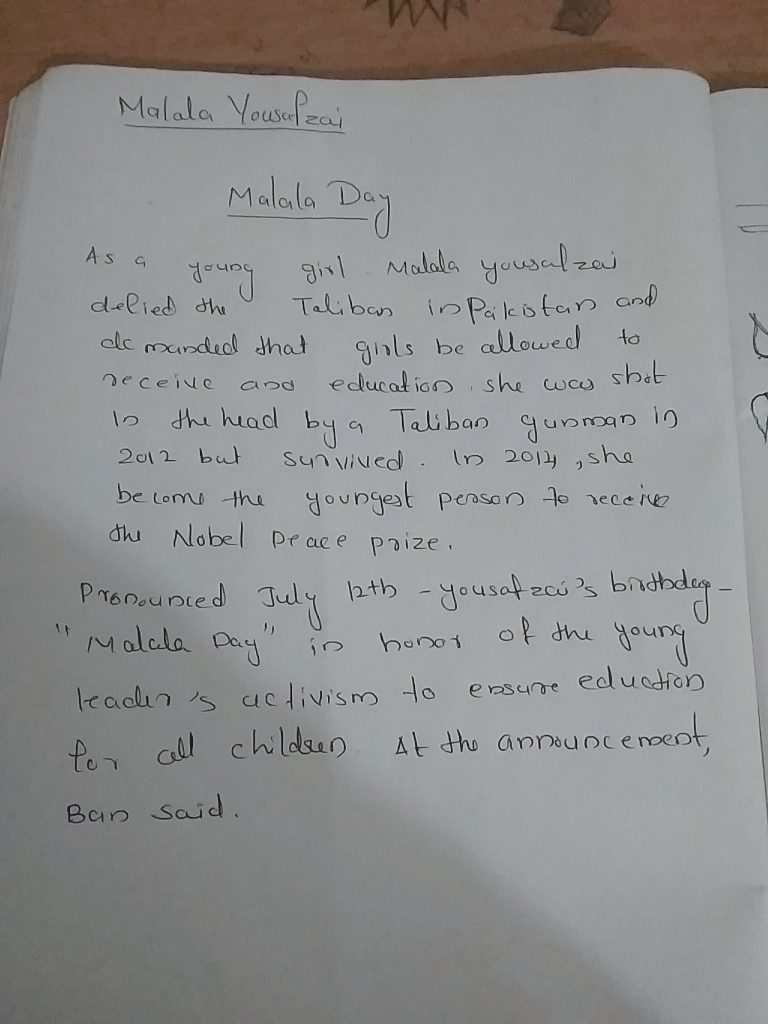 Malala Yousafzai
Malala Day
As a young girl Malala yousafzai
defied the Taliban in Pakistan and
demanded that girls be allowed to
receive and education. she was shot
In the head by a Taliban gunman in
2012 but survived. In 2014, she
become the youngest person to receive
the Nobel Peace prize.
Pronounced July 12th - yousafzai's birthday -
"Malala Day" in honor of the young
leader's activism to ensure eduction
for all children. At the announcement,
Ban said.